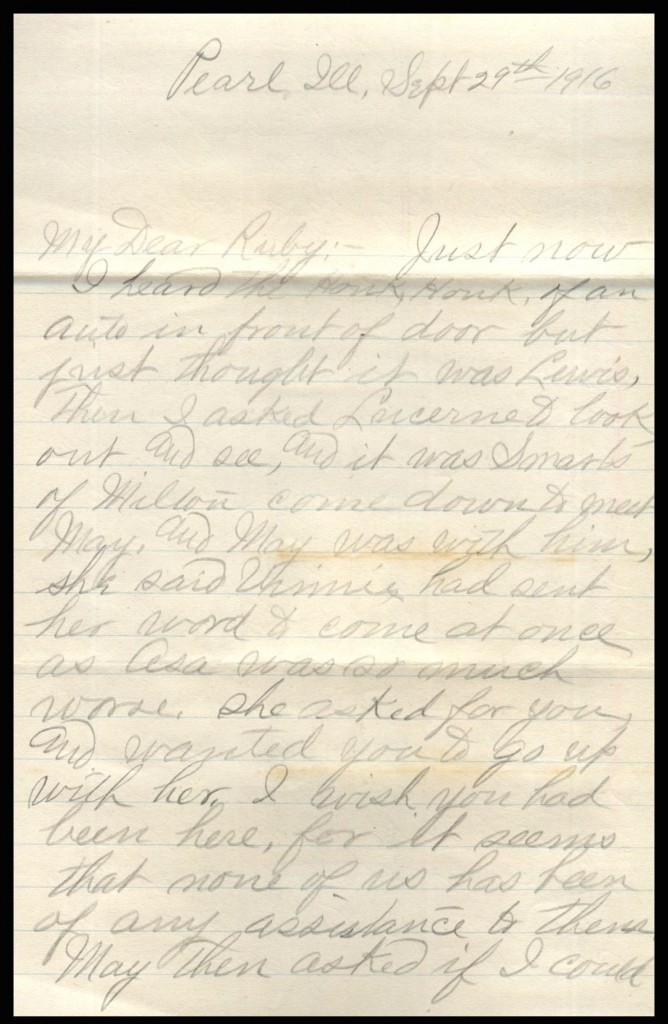 Pearl, Ill, Sept 29th 1916
My Dear Ruby:- Just now
I heard the Honk, Honk, of an
auto in front of door but
just thought it was Lewis,
then I asked Lucerne to look
out and see, and it was Smarts
of Milton come down to meet
May, and May was with him,
she said Vinnie had sent
her word to come at once
as Asa was so much
worse. She asked for you,
and wanted you to go up
with her, I wish you had
been here, for it seems
that none of us has been
of any assistance to them
May then asked if I could